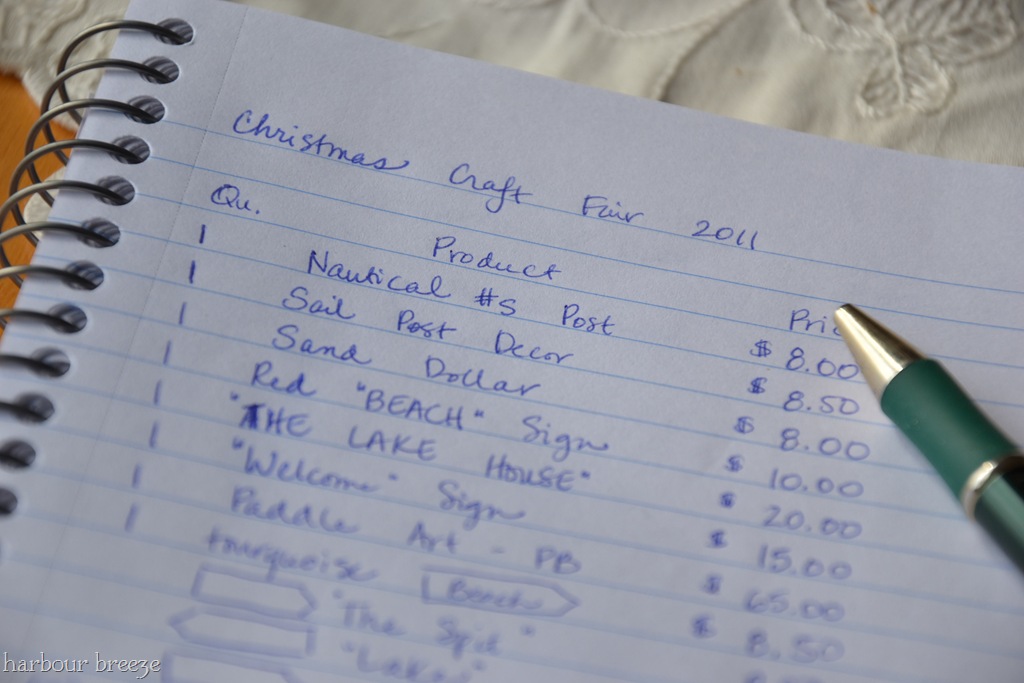 Christmas Craft Fair 2011
Qu. Product Pric
1 Nautical #s Post $ 8.00
1 Sail Post Decor $ 8.50
1 Sand Dollar $ 8.00
1 Red "BEACH" Sign $ 10.00
1 "THE LAKE HOUSE" $ 20.00
1 "Welcome" Sign $ 15.00
1 Paddle Art - PB $ 65.00
1 tourqueise Beach $ 8.50
"The Spit"
"Lake"
harbour breeze